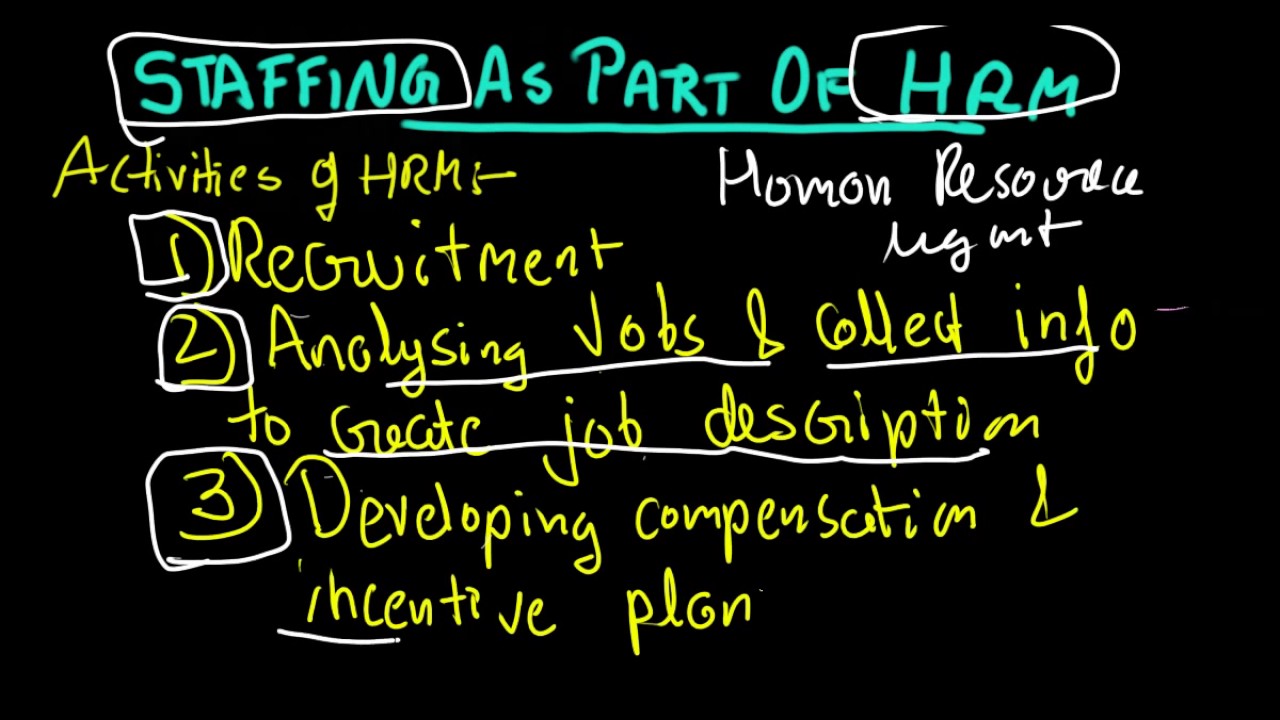 STAFFING AS PART OF HRM
Activities of HRM:-
Human Resource
Mgmt
1) Recruitment
2) Analysing Jobs & collect info
to create job description
3) Developing compensation &
incentive plan